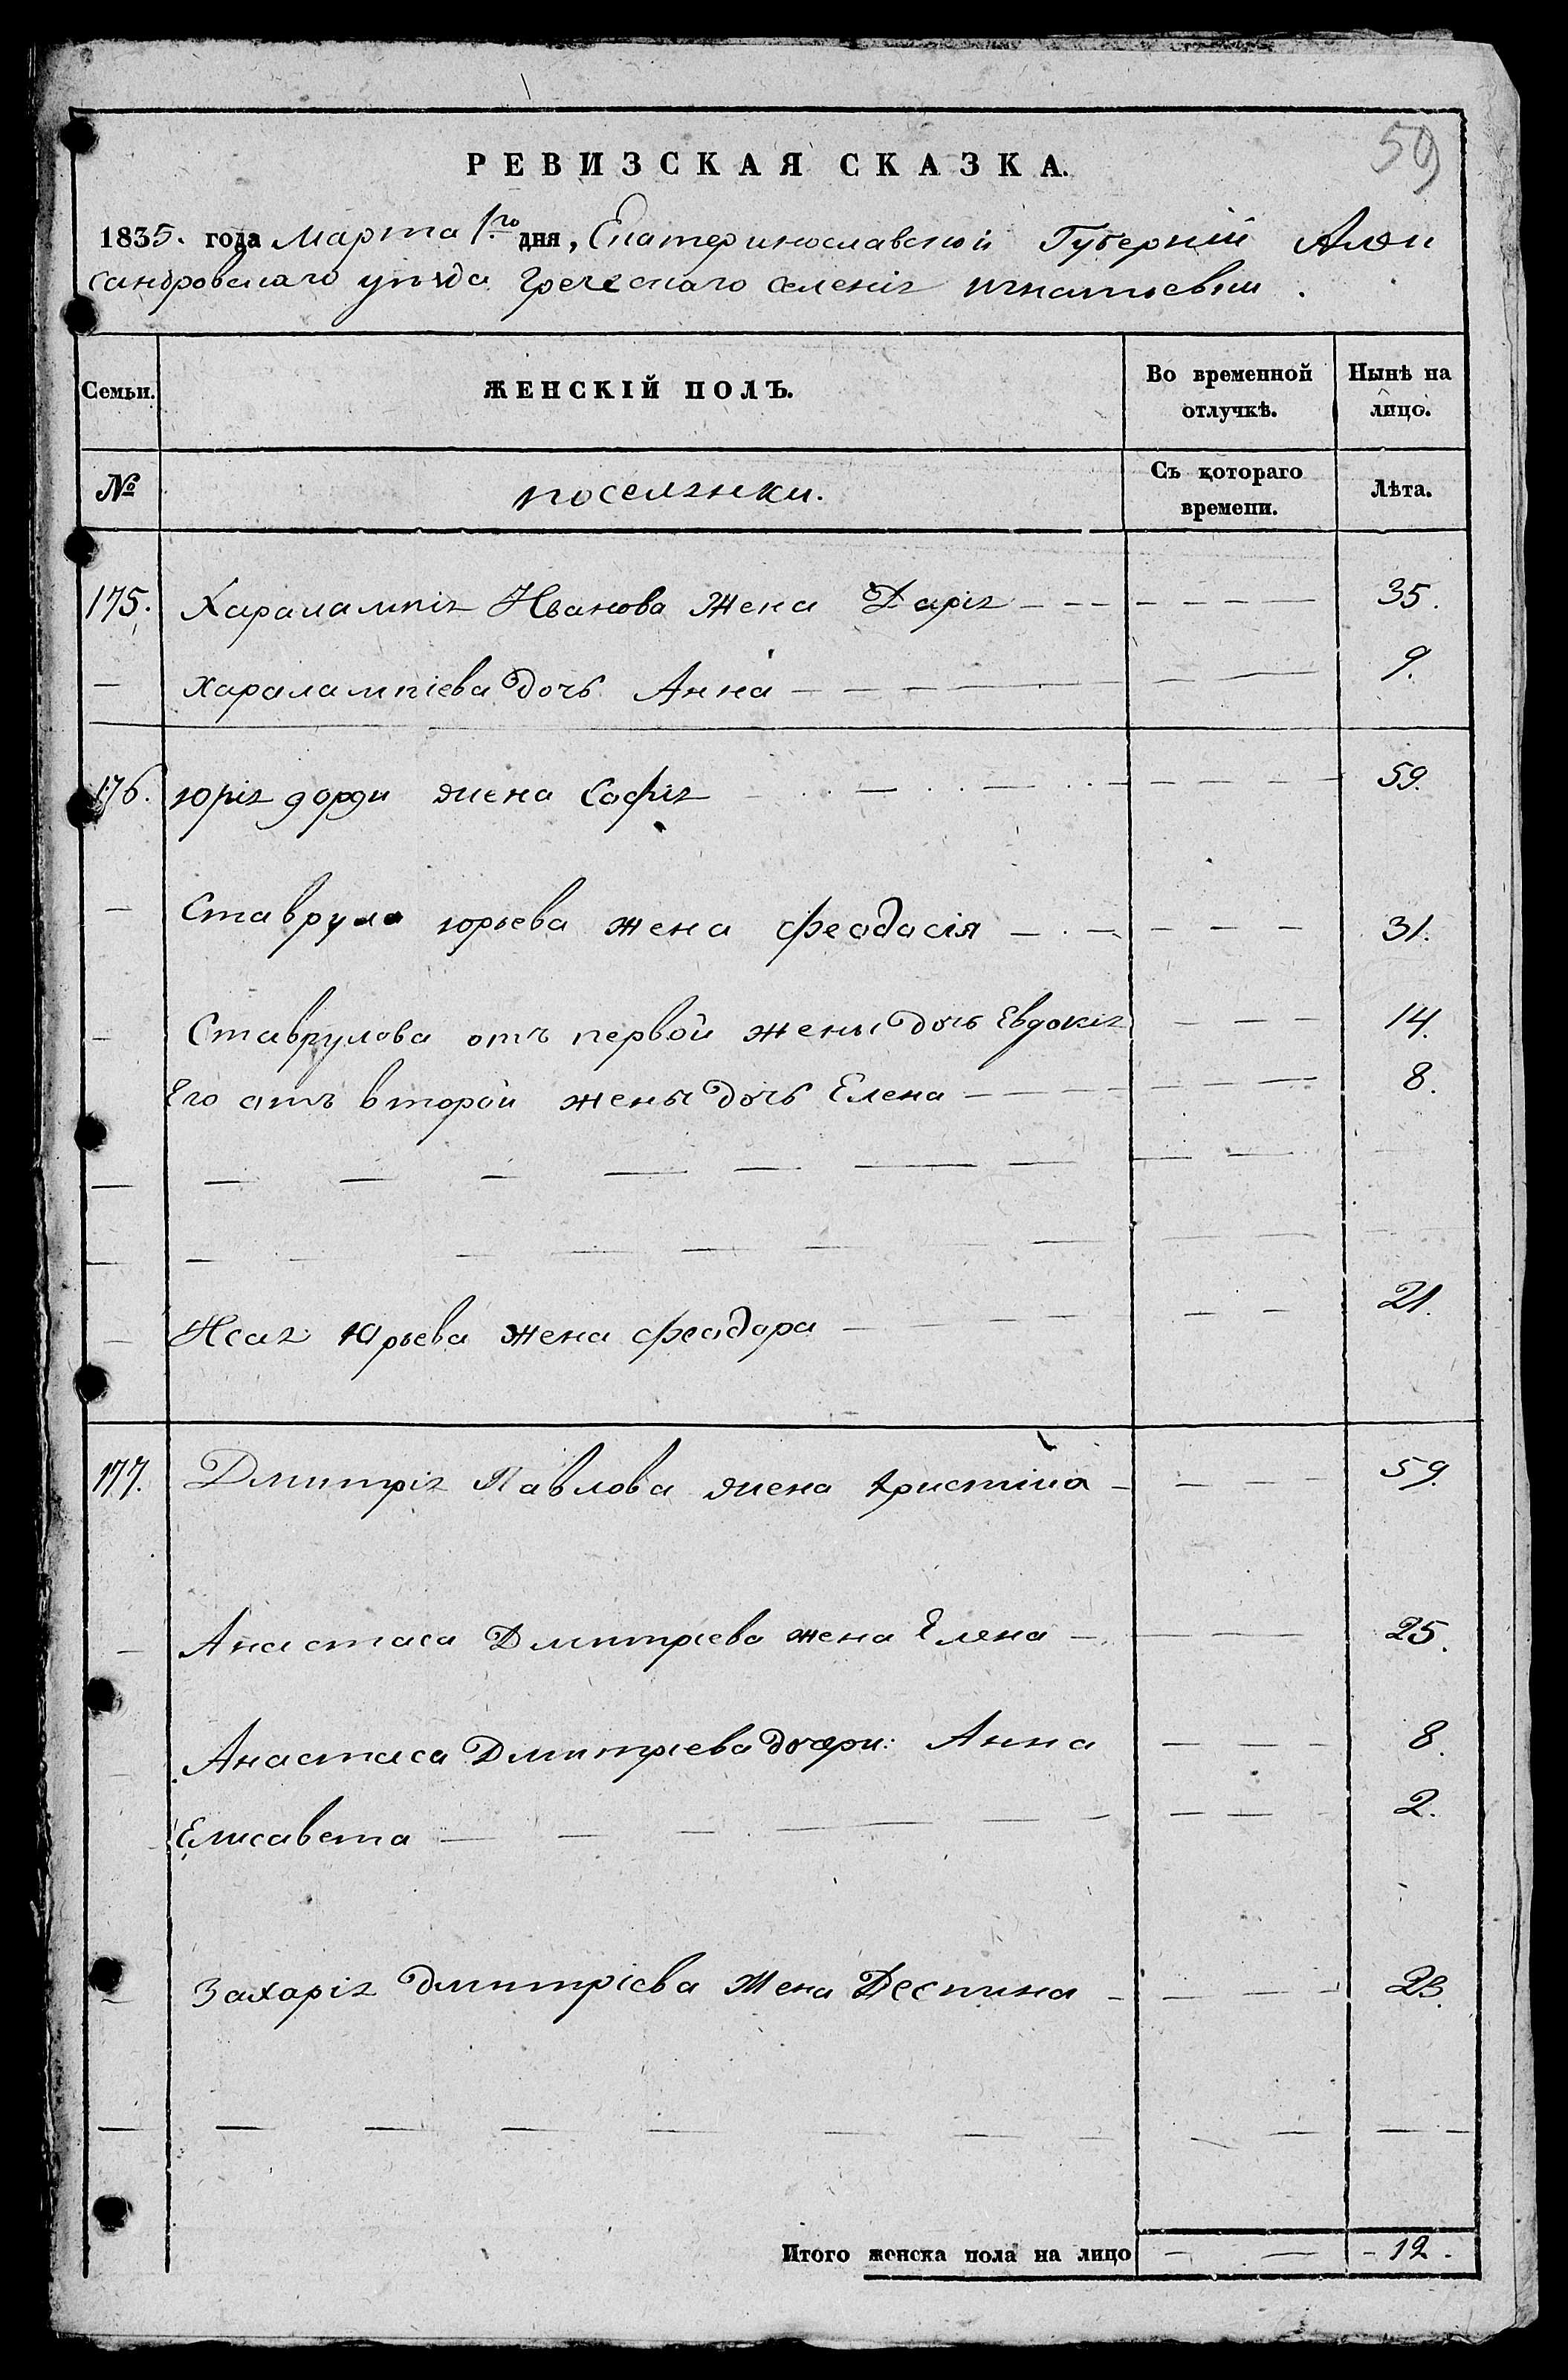 59
РЕВИЗСКАЯ СКАЗКА.
1835. года Марта 1го дня, Екатеринославской Губерніи Алек
сандровскаго уѣзда Греческаго селенія
Семьи. ЖЕНСКІЙ ПОЛЪ. Во временной отлучкѣ. Нынѣ на лицо.
№ поселянки. Съ котораго времени. Лѣта.
175. Харалампія Иванова жена Дарія 35.
Харалампіева дочь Анна 9.
176. юрія дорди жена Софія 59.
Ставрула юрьева жена Феодосія 31.
Ставрулова отъ первой жены дочь Евдокія 14.
Его отъ второй жены дочь Елена 8.
Исая Юрьева жена Феодора 21.
177. Дмитрія Павлова жена 59.
Анастаса Дмитріева жена Елена 25.
Анастаса Дмитріева дочери: Анна 8.
Елисавета 2.
Захарія Дмитріева жена Деспина 23.
Итого женска пола на лицо 12.